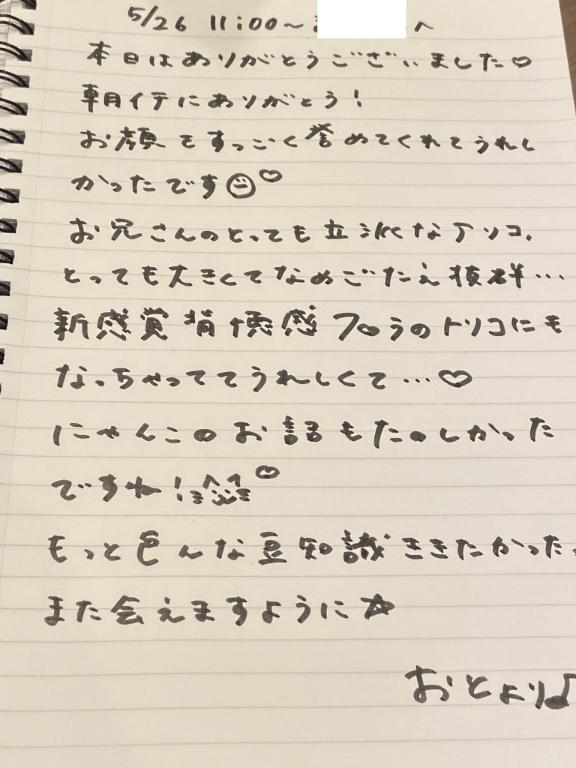 5/26 11:00〜 へ
本日はありがとうございました♡
朝イチにありがとう!
お顔をすっごく誉めてくれてうれし
かったです☺♡
お兄さんのとっても立派なアソコ、
とっても大きくてなめごたえ抜群…
新感覚背徳感フロうのトリコにも
なっちゃっててうれしくて…♡
にゃんこのお話もたのしかった
ですね!♡
もっと色んな豆知識ききたかった
また会えますように☆
おとより♪